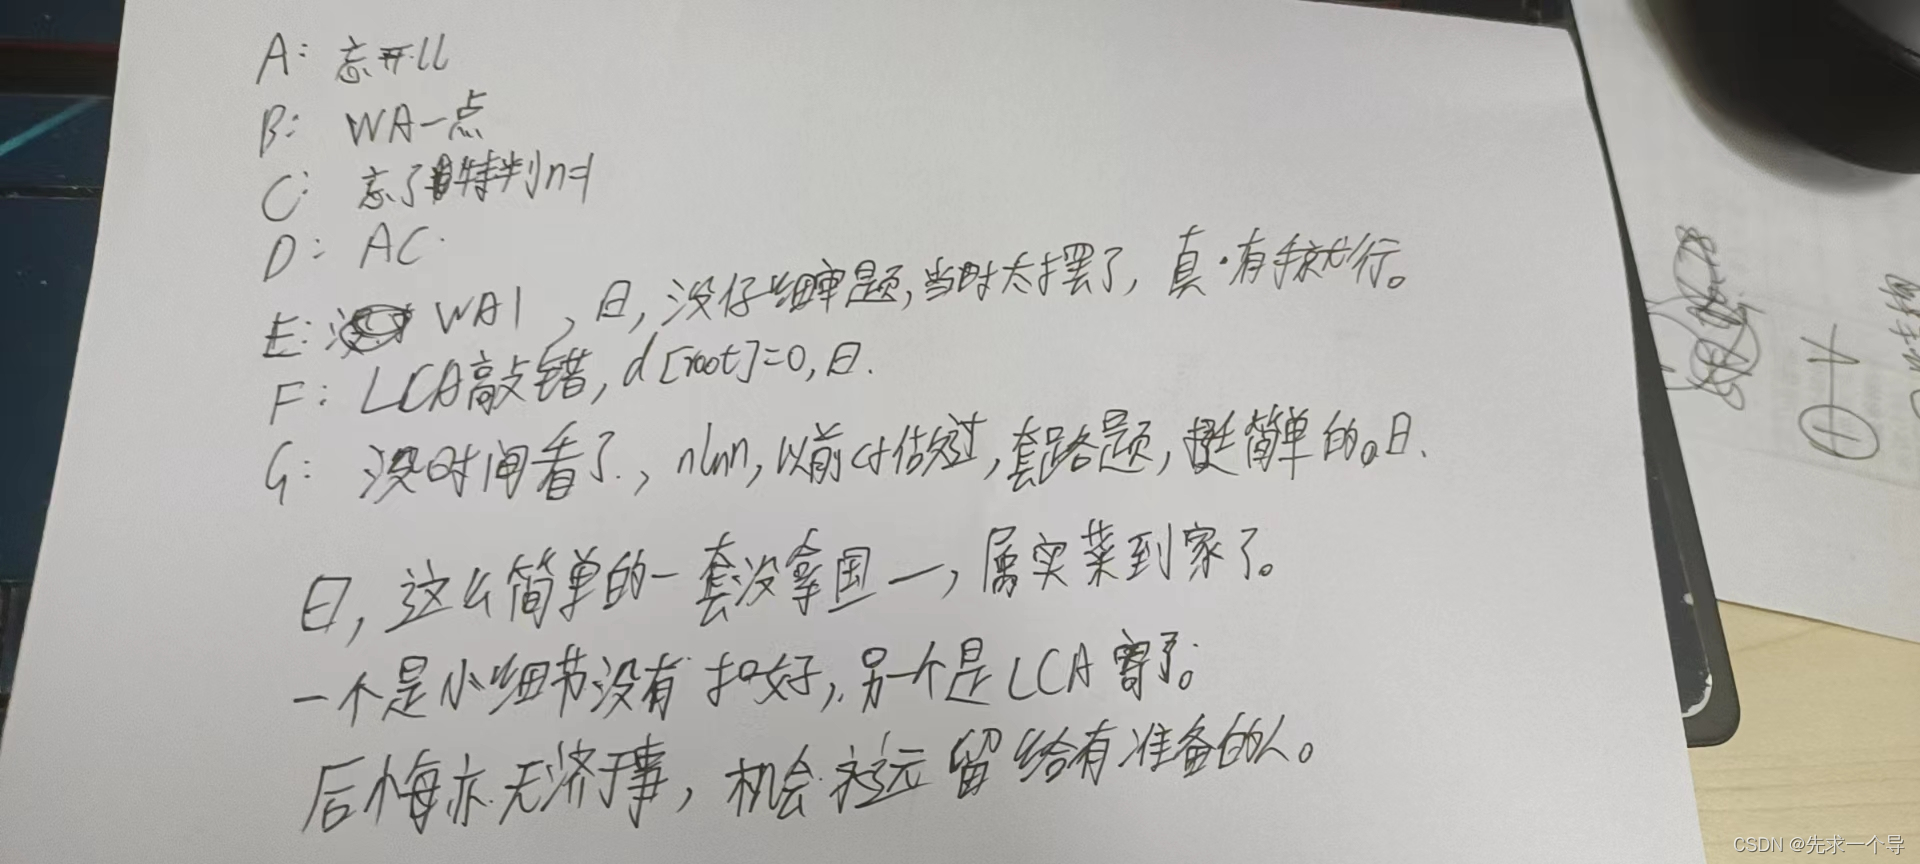 A: 忘开ll
B: WA一点
C: 忘了特判n=1
D: AC.
E: WA1，日，没仔细审题，当时太摆了，真·有手就行。
F: LCA敲错，d[root]=0，日.
G: 没时间看了，nlnn，以前cf做过，套路题，挺简单的。日.
日，这么简单的一套没拿国一，属实菜到家了。
一个是小细节没有扣好，另一个是LCA寄了。
后悔亦无济于事，机会永远留给有准备的人。
CSDN @先求一个导